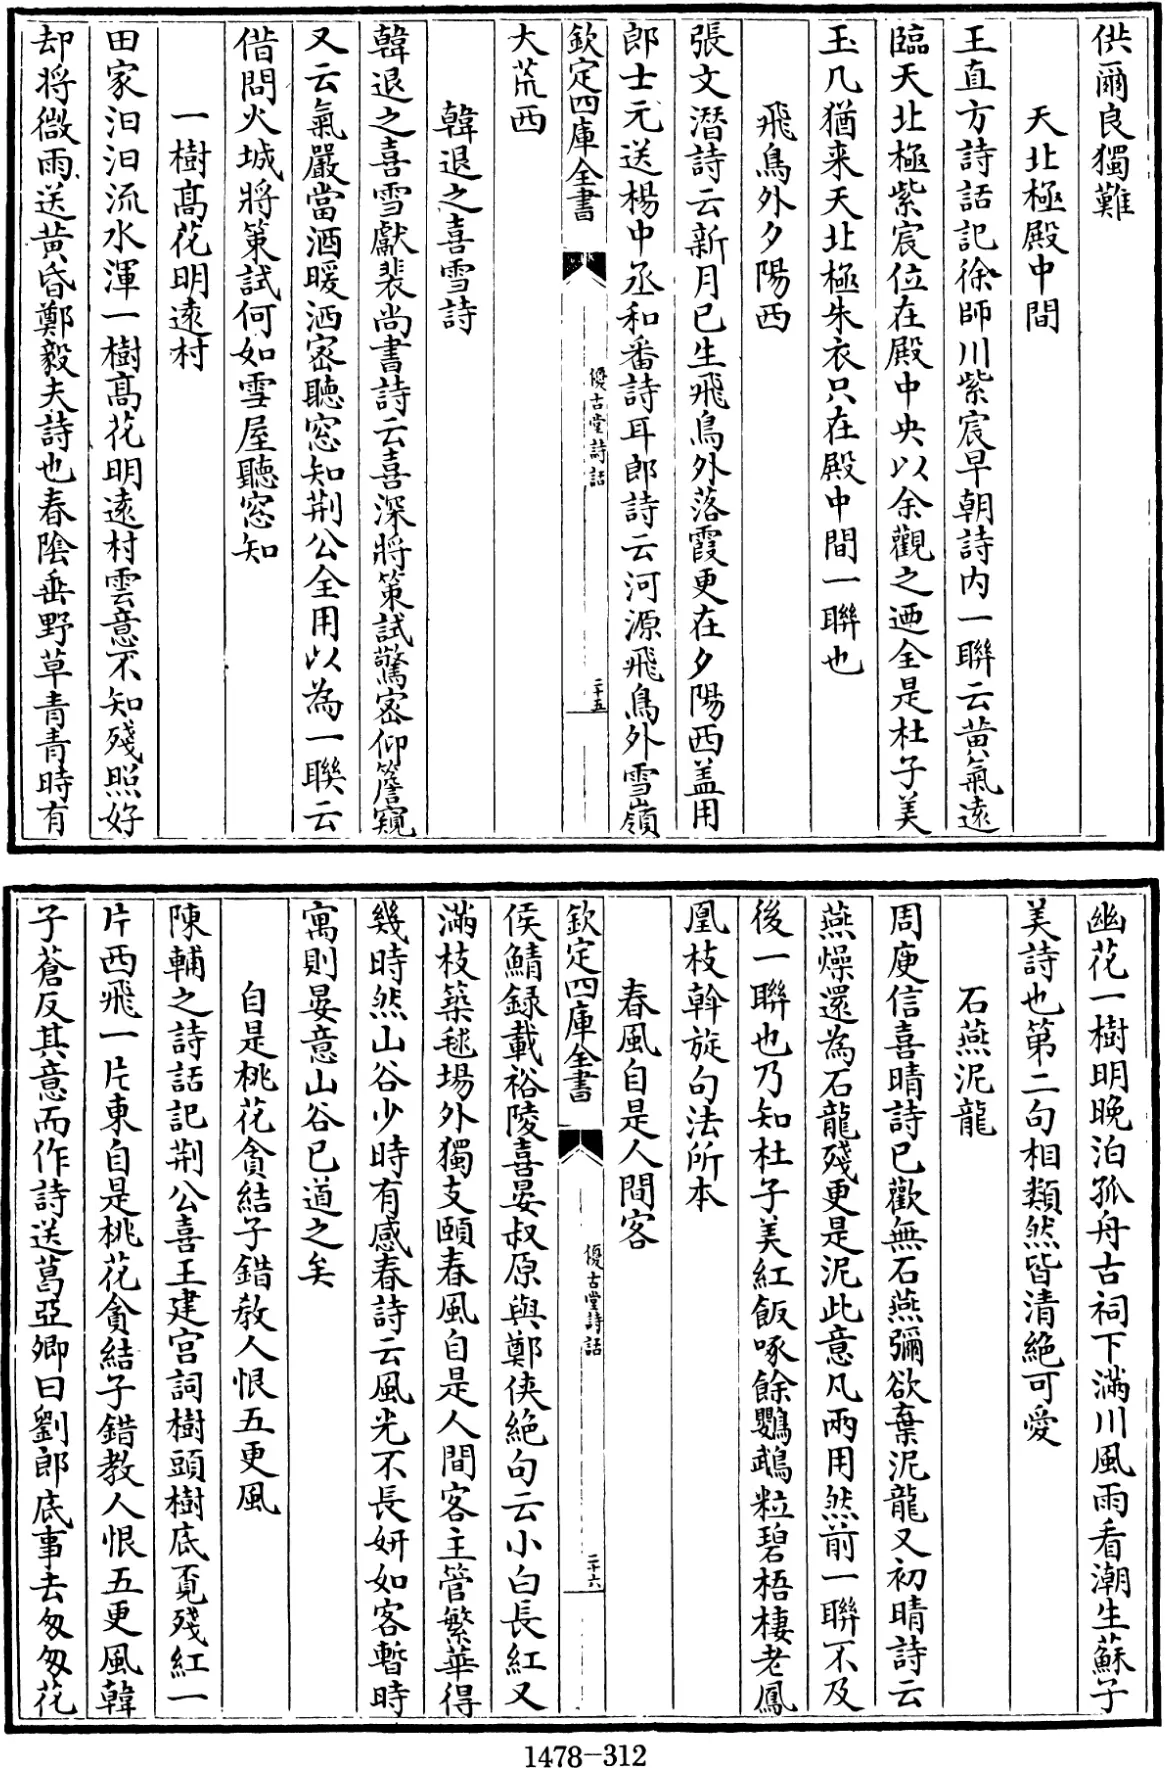 供爾良獨難
天北極殿中間
王直方詩話記徐師川紫宸早朝詩内一聯云黄氣逺
臨天北極紫宸位在殿中央以余觀之迺全是杜子美
玉几猶来天北極朱衣只在殿中間一聯也
飛鳥外夕陽西
張文潜詩云新月已生飛鳥外落霞更在夕陽西盖用
郎士元送楊中丞和番詩耳郎詩云河源飛鳥外雪嶺
欽定四庫全書
優古堂詩話
二十五
大荒西
韓退之喜雪詩
韓退之喜雪獻裴尚書詩云喜深將策試驚密仰簷窺
又云氣嚴當酒暖洒密聽窓知荆公全用以為一聨云
借問火城將策試何如雪屋聽窓知
一樹髙花明逺村
田家汩汩流水渾一樹髙花明逺村雲意不知殘照好
却將微雨送黄昏鄭毅夫詩也春陰垂野草青青時有
幽花一樹明晚泊孤舟古祠下滿川風雨看潮生蘇子
美詩也第二句相類然皆清絶可愛
石燕泥龍
周庾信喜晴詩已歡無石燕彌欲棄泥龍又初晴詩云
燕燥還為石龍殘更是泥此意凡兩用然前一聯不及
後一聯也乃知杜子美紅飯啄餘鸚鵡粒碧梧棲老鳳
凰枝斡旋句法所本
春風自是人間客
欽定四庫全書
優古堂詩話
二十六
侯鯖録載裕陵喜晏叔原與鄭俠絶句云小白長紅又
滿枝築毬場外獨支頤春風自是人間客主管繁華得
幾時然山谷少時有感春詩云風光不長妍如客暫時
寓則晏意山谷已道之矣
自是桃花貪結子錯教人恨五更風
陳輔之詩話記荆公喜王建宫詞樹頭樹底覓殘紅一
片西飛一片東自是桃花貪結子錯教人恨五更風韓
子蒼反其意而作詩送葛亞卿曰劉郎底事去匆匆花
1478-312